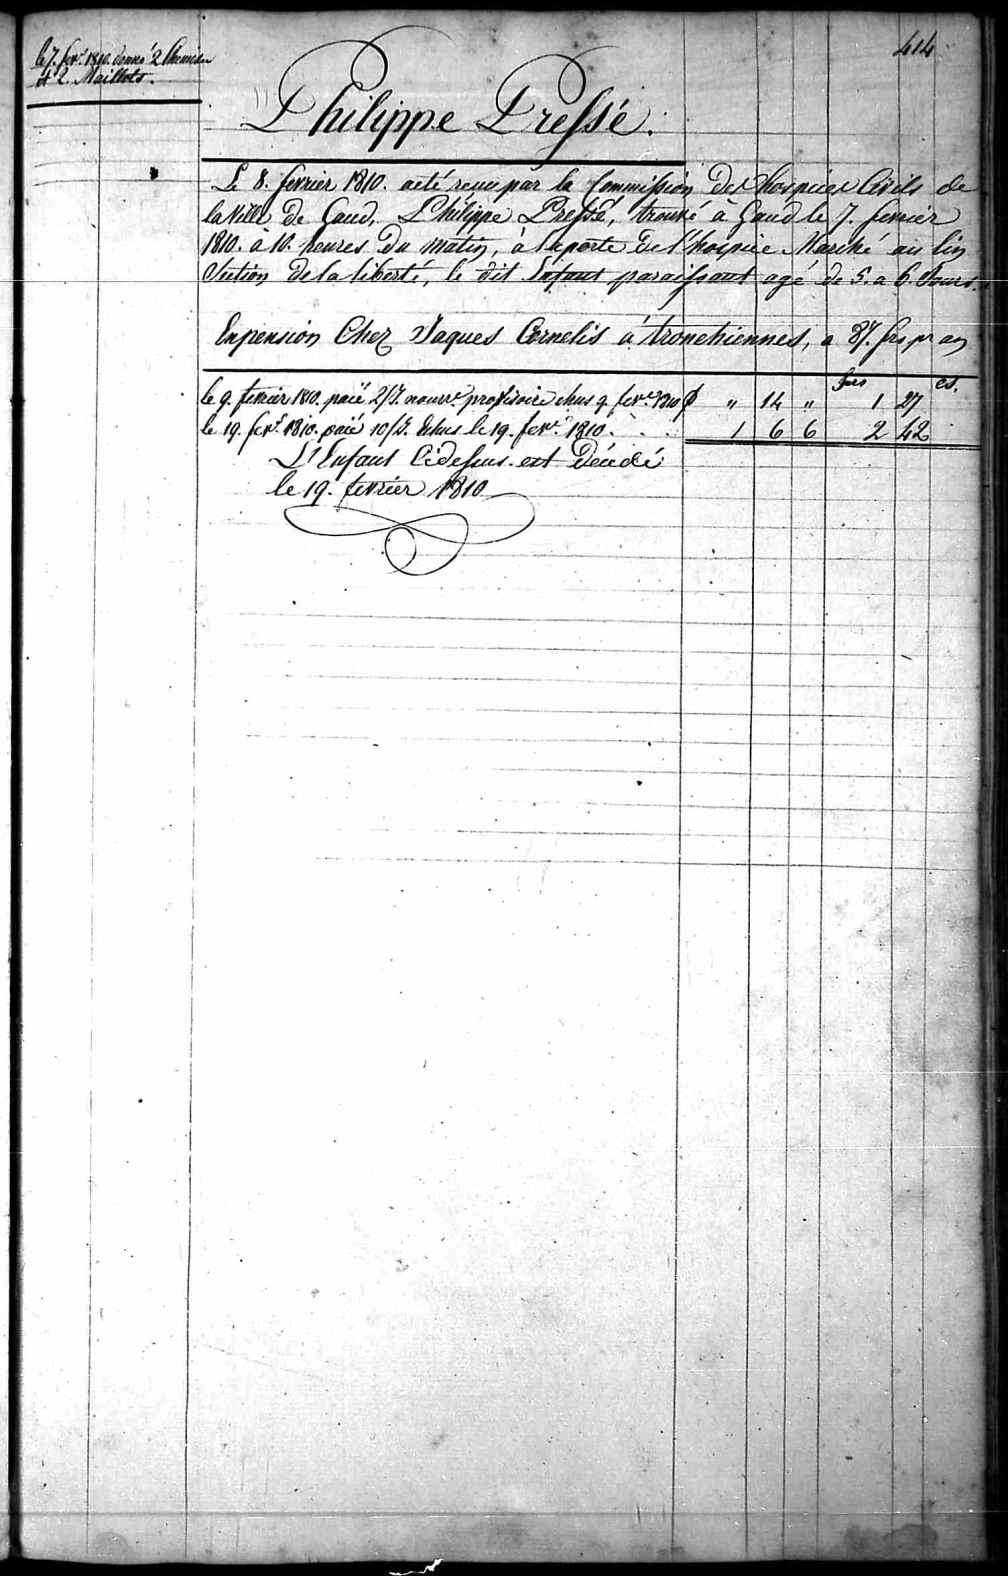 414
le 7. fevr. 1810. donné 2 Chemises
et 2. Maillots.
Philippe Pressé.
Le 8. fevrier 1810. a eté reçu par la Commission des hospices Civils de
la Ville de Gand, Philippe Pressé, trouvé à Gand le 7. fevrier
1810. à 10. heures du matin, à la porte de l'hospice Marché au lin
Section de la liberté, le dit Enfant paraissant agé de 5. a 6. Jours.
Enpension Chez Jaques Cornelis á tronchiennes, a 87. frs pr an
frs cs.
le 9. fevrier 1810. paié 2/J. nourre. provisoire echus 9. fevr. 1810 „ 14 „ 1 27
le 19. fevr. 1810. paié 10/J. Echus le 19. fevr. 1810. . . . 1 6 6 2 42
L'Enfant Cidessus est Décédé
le 19. fevrier 1810